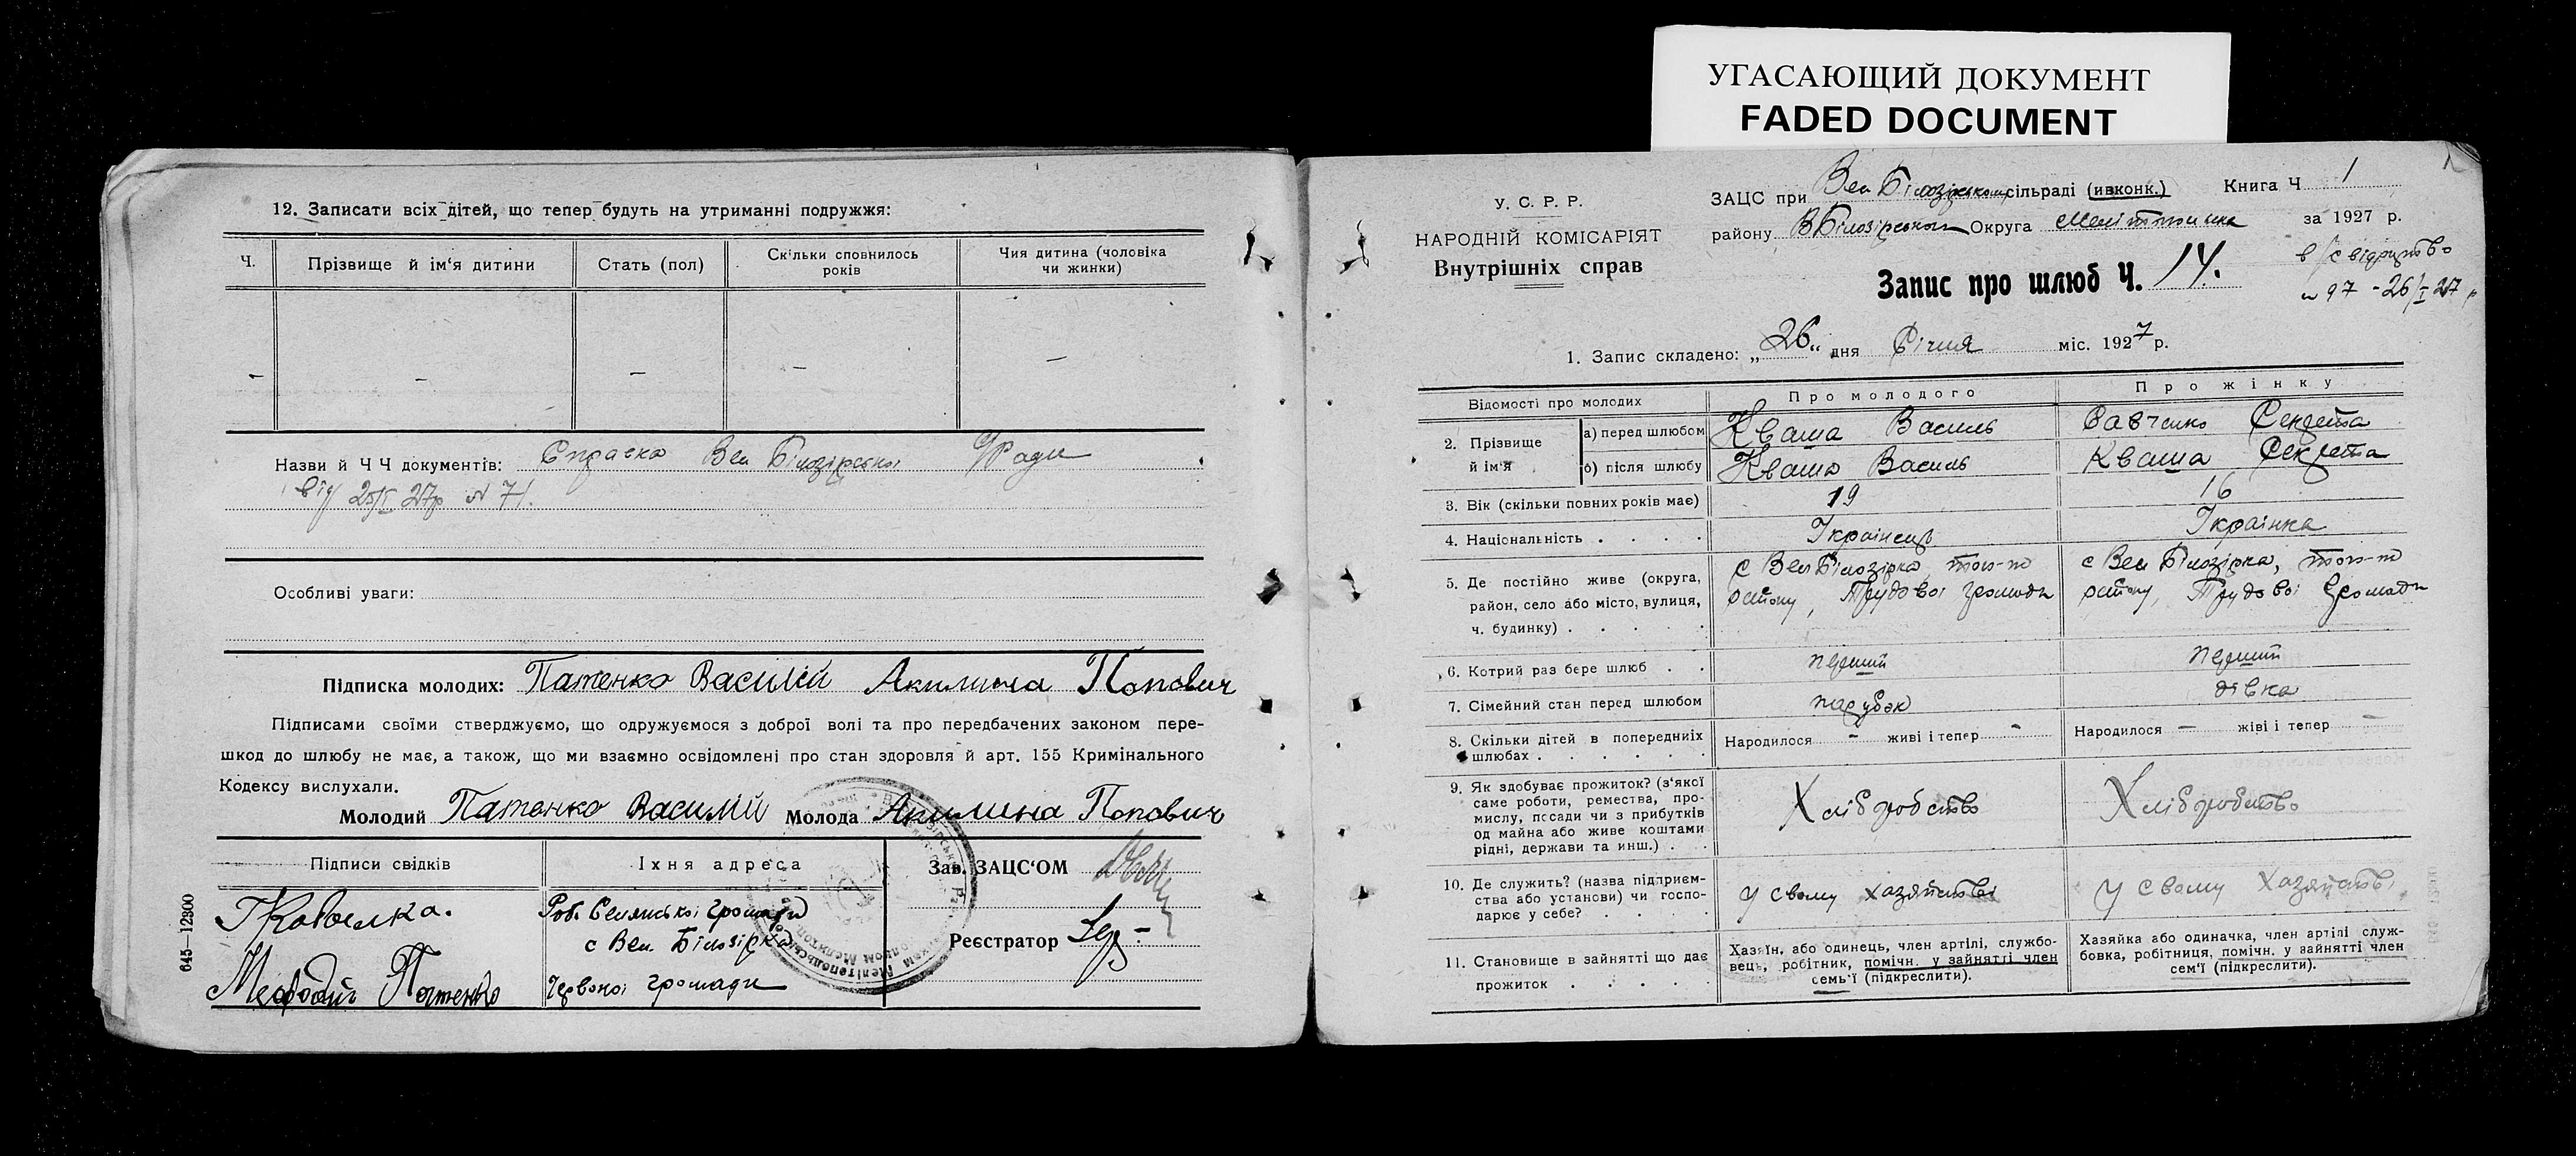 УГАСАЮЩИЙ ДОКУМЕНТ
FADED DOCUMENT
12. Записати всіх дітей, що тепер будуть на утриманні подружжя:
Ч.
Прізвище й ім‘я дитини
Стать (пол)
Скільки сповнилось років
Чия дитина (чоловіка чи жинки)
– – – – –
Назви й Ч Ч документів: Справка Вел Білозірської с/Ради
від 25/I 27р N 71.
Особливі уваги:
Підписка молодих: Патенко Василій Акилина Попович
Підписами своїми стверджуємо, що одружуємося з доброї волі та про передбачених законом пере-
шкод до шлюбу не має, а також, що ми взаємно освідомлені про стан здоровля й арт. 155 Кримінального
Кодексу вислухали.
Молодий Патенко Василій Молода Акилина Попович
Підписи свідків
Їхня адреса
Зав. ЗАЦС‘ОМ
Роб. Селянської громади
с Вел Білозірка
Реєстратор
Патенко
Червоної громади
645—12300
У. С. Р. Р.
НАРОДНІЙ КОМІСАРІЯТ
Внутрішніх справ
ЗАЦС при Вел Білозірському сільраді (ивконк.) Книга Ч 1
району ВБілозірського Округа Мелітопільска за 1927 р.
Запис про шлюб Ч. 14.
в/свідоцтво
N 97 - 26/I 27 р
1. Запис складено: „26“ дня Січня міс. 1927 р.
Відомості про молодих
Про молодого
Про жінку
2. Прізвище й ім‘я
а) перед шлюбом Кваша Василь Савченко Секлета
б) після шлюбу Кваша Василь Кваша Секлета
3. Вік (скільки повних років має) 19 16
4. Національність . . . . Українець Українка
5. Де постійно живе (округа, район, село або місто, вулиця, ч. будинку) . . . . .
с Вел Білозірка, того-ж району, Трудової громади
с Вел Білозірка, того-ж району, Трудової громади
6. Котрий раз бере шлюб . . перший перший
7. Сімейний стан перед шлюбом парубок дівка
8. Скільки дітей в попередніх шлюбах . . . . . .
Народилося – живі і тепер –
Народилося – живі і тепер –
9. Як здобуває прожиток? (з‘якої саме роботи, ремества, про-
мислу, посади чи з прибутків
од майна або живе коштами
рідні, держави та инш.) . .
Хліборобство
Хліборобство
10. Де служить? (назва підприєм-
ства або установи) чи госпо-
дарює у себе? . . . .
У свому хазяйстві
У свому хазяйстві
11. Становище в зайнятті що дає
прожиток . . . . .
Хазяїн, або одинець, член артілі, службо-
вець, робітник, помічн. у зайнятті член
семь‘ї (підкреслити).
Хазяйка або одиначка, член артілі служ-
бовка, робітниця, помічн. у зайнятті член
сем‘ї (підкреслити).